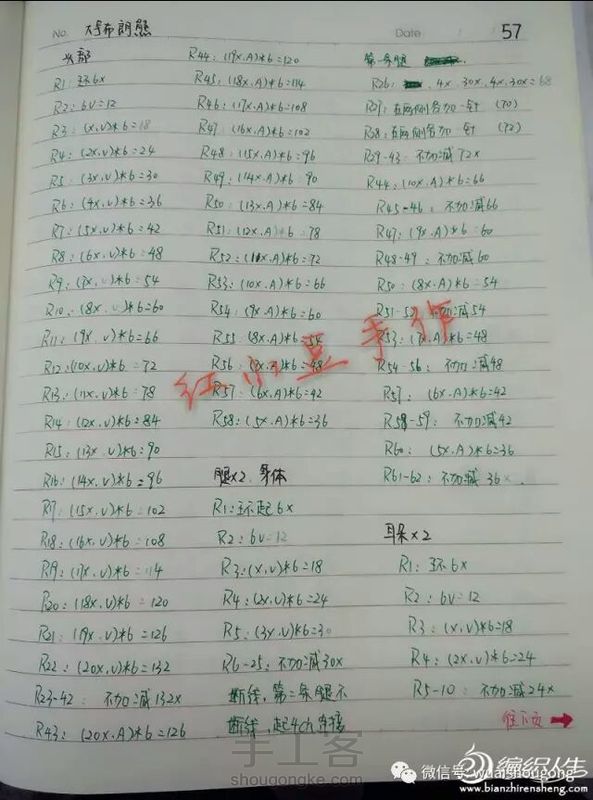 No. 大号布朗熊
Date
57
头部
R1: 环6x
R2: 6v=12
R3: (x.v)*6=18
R4: (2x.v)*6=24
R5: (3x.v)*6=30
R6: (4x.v)*6=36
R7: (5x.v)*6=42
R8: (6x.v)*6=48
R9: (7x.v)*6=54
R10: (8x.v)*6=60
R11: (9x.v)*6=66
R12: (10x.v)*6=72
R13: (11x.v)*6=78
R14: (12x.v)*6=84
R15: (13x.v)*6=90
R16: (14x.v)*6=96
R17: (15x.v)*6=102
R18: (16x.v)*6=108
R19: (17x.v)*6=114
R20: (18x.v)*6=120
R21: (19x.v)*6=126
R22: (20x.v)*6=132
R23-42: 不加减132x
R43: (20x.A)*6=126
R44: (19x.A)*6=120
R45: (18x.A)*6=114
R46: (17x.A)*6=108
R47: (16x.A)*6=102
R48: (15x.A)*6=96
R49: (14x.A)*6=90
R50: (13x.A)*6=84
R51: (12x.A)*6=78
R52: (11x.A)*6=72
R53: (10x.A)*6=66
R54: (9x.A)*6=60
R55: (8x.A)*6=54
R56: (7x.A)*6=48
R57: (6x.A)*6=42
R58: (5x.A)*6=36
腿x2、身体
R1: 环起6x
R2: 6v=12
R3: (x.v)*6=18
R4: (2x.v)*6=24
R5: (3x.v)*6=30
R6-25: 不加减30x
断线, 第二条腿不
断线, 起4ch连接
第一条腿
R26: 4x. 30x. 4x. 30x=68
R27: 在两侧各加一针 (70)
R28: 在两侧各加一针 (72)
R29-43: 不加减72x
R44: (10x.A)*6=66
R45-46: 不加减66
R47: (9x.A)*6=60
R48-49: 不加减60
R50: (8x.A)*6=54
R51-52: 不加减54
R53: (7x.A)*6=48
R54-56: 不加减48
R57: (6x.A)*6=42
R58-59: 不加减42
R60: (5x.A)*6=36
R61-62: 不加减36x
耳朵x2
R1: 环6x
R2: 6v=12
R3: (x.v)*6=18
R4: (2x.v)*6=24
R5-10: 不加减24x
往下页
红小豆手作
手工客
shougongke.com
微信号: wdaishougong
编织人生
www.bianzhirensheng.com